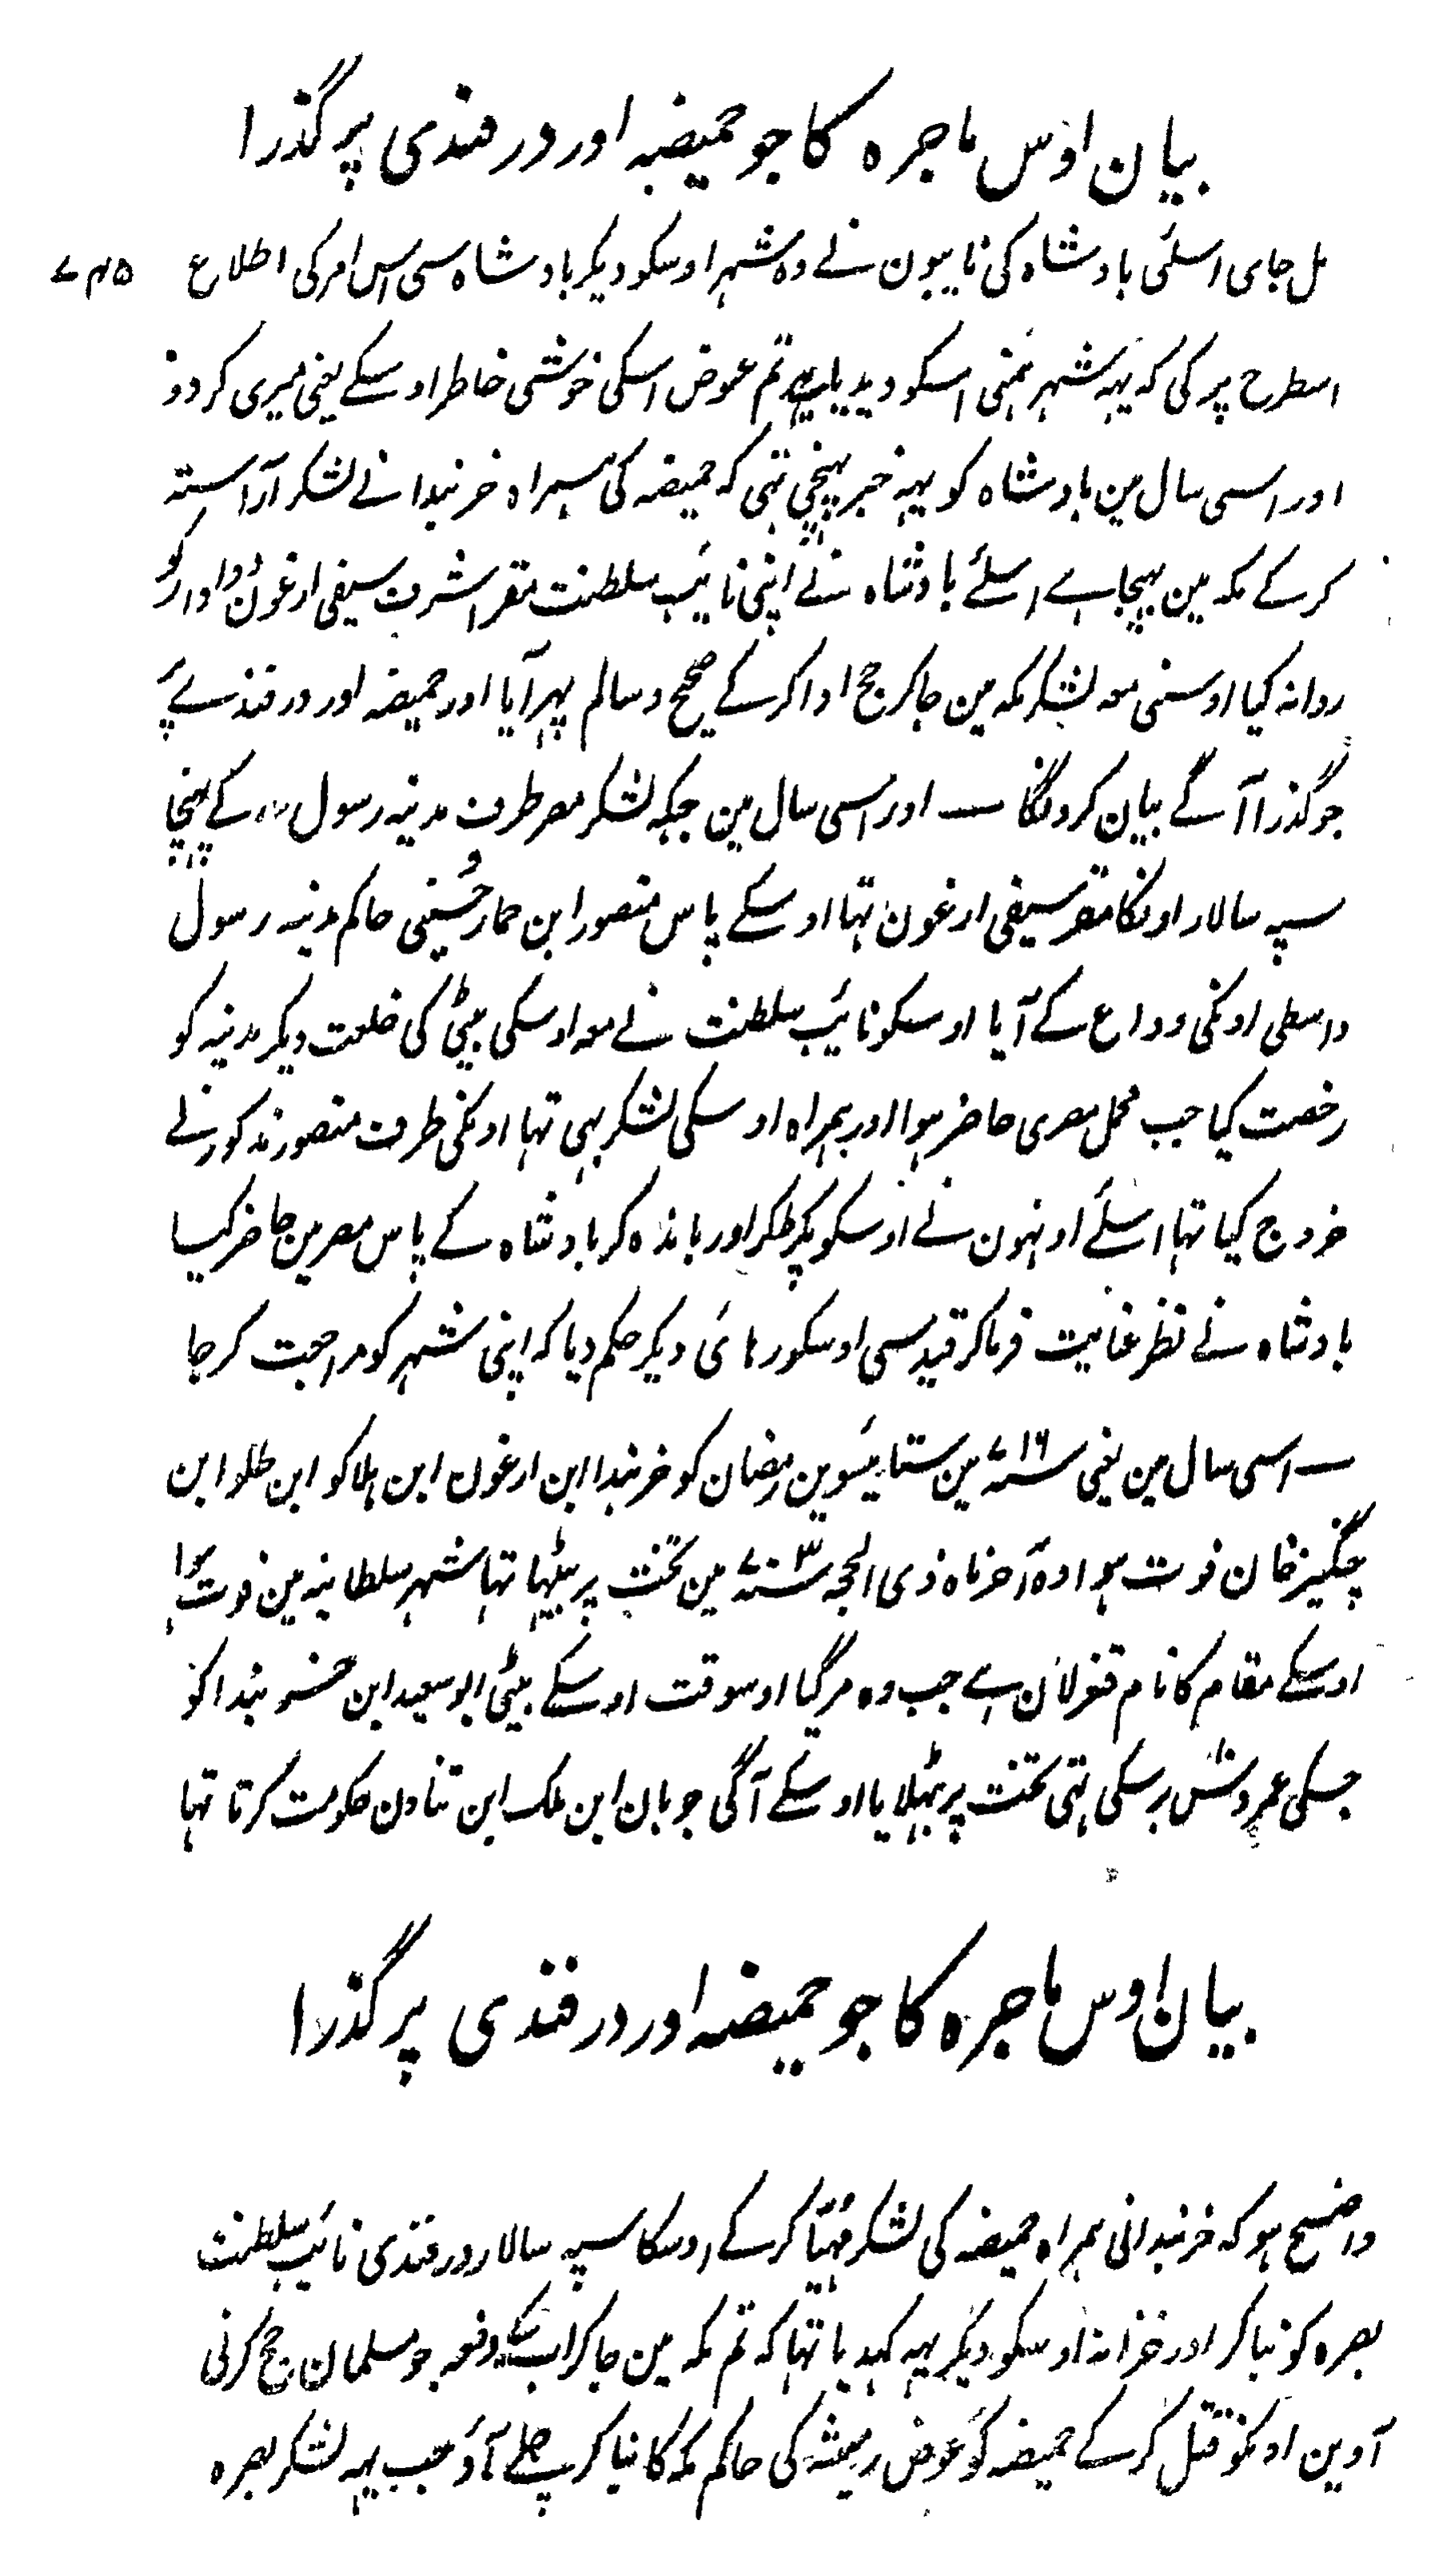 بیان اوس ماجرہ کا جو حمیضہ اور درفندی پر گذرا
مل جای اسلئی بادشاہ کی نایبون نے وہ شہر اوسکو دیکر بادشاہ سی اس امر کی اطلاع ۷۴۵
اسطرح پر کی کہ یہہ شہر ہمنی اسکو دیدیا ہے تم عوض اسکی خوشی خاطر اوسکے یعنی میری کردو
اور اسی سال مین بادشاہ کو یہہ خبر پہنچی تہی کہ حمیضہ کی ہمراہ خربندا نے لشکر آراستہ
کرکے مکہ مین بہیجا ہے اسلئے بادشاہ نے اپنی نائیب سلطنت مقر اشرف سیفی ارغون دوادار کو
روانہ کیا اوسنی معہ لشکر مکہ مین جاکر حج ادا کرکے صحیح و سالم پہر آیا اور حمیضہ اور درفندے پر
جو گذرا آگے بیان کرونگا — اور اسی سال مین جبکہ لشکر مصر طرف مدینہ رسول کے پہنچا
سپہ سالار اونکا مقر سیفی ارغون تہا اوسکے پاس منصور ابن حمار حسینی حاکم مدینہ رسول
واسطی اونکی وداع کے آیا اوسکو نائیب سلطنت نے معہ اوسکی بیٹی کی خلعت دیکر مدینہ کو
رخصت کیا جب محمل مصری حاضر ہوا اور ہمراہ اوسکی لشکر بہی تہا اونکی طرف منصور مذکور نے
خروج کیا تہا اسلئے اونہون نے اوسکو پکڑکر اور باندہ کر بادشاہ کے پاس مصر مین حاضر کیا
بادشاہ نے نظر عنایت فرماکر قید سی اوسکو رہائی دیکر حکم دیا کہ اپنی شہر کو مراجعت کر جا
— اسی سال مین یعنی ۷۱۶ سنہ مین ستائیسوین رمضان کو خربندا ابن ارغون ابن ہلاکو ابن طلو ابن
چنگیز خان فوت ہوا وہ آخر ماہ ذی الحجہ ۷۰۳ سنہ مین تخت پر بیٹہا تہا شہر سلطانیہ مین فوت ہوا
اوسکے مقام کا نام قنغرلان ہے جب وہ مر گیا اوسوقت اوسکے بیٹی ابو سعید ابن خربندا کو
جسکی عمر دس برسکی تہی تخت پر بٹہلایا اوسکے آگی جوبان ابن ملک ابن تناون حکومت کرتا تہا
بیان اوس ماجرہ کا جو حمیضہ اور درفندی پر گذرا
واضح ہو کہ خربندا نی ہمراہ حمیضہ کی لشکر مہیّا کرکے اوسکا سپہ سالار درفندی نائیب سلطنت
بصرہ کو بناکر اور خزانہ اوسکو دیکر یہہ کہدیا تہا کہ تم مکہ مین جاکر ابکے دفعہ جو مسلمان حج کرنی
آوین اونکو قتل کرکے حمیضہ کو عوض رمیثہ کی حاکم مکہ کا بناکر چلے آؤ جب یہہ لشکر بصرہ